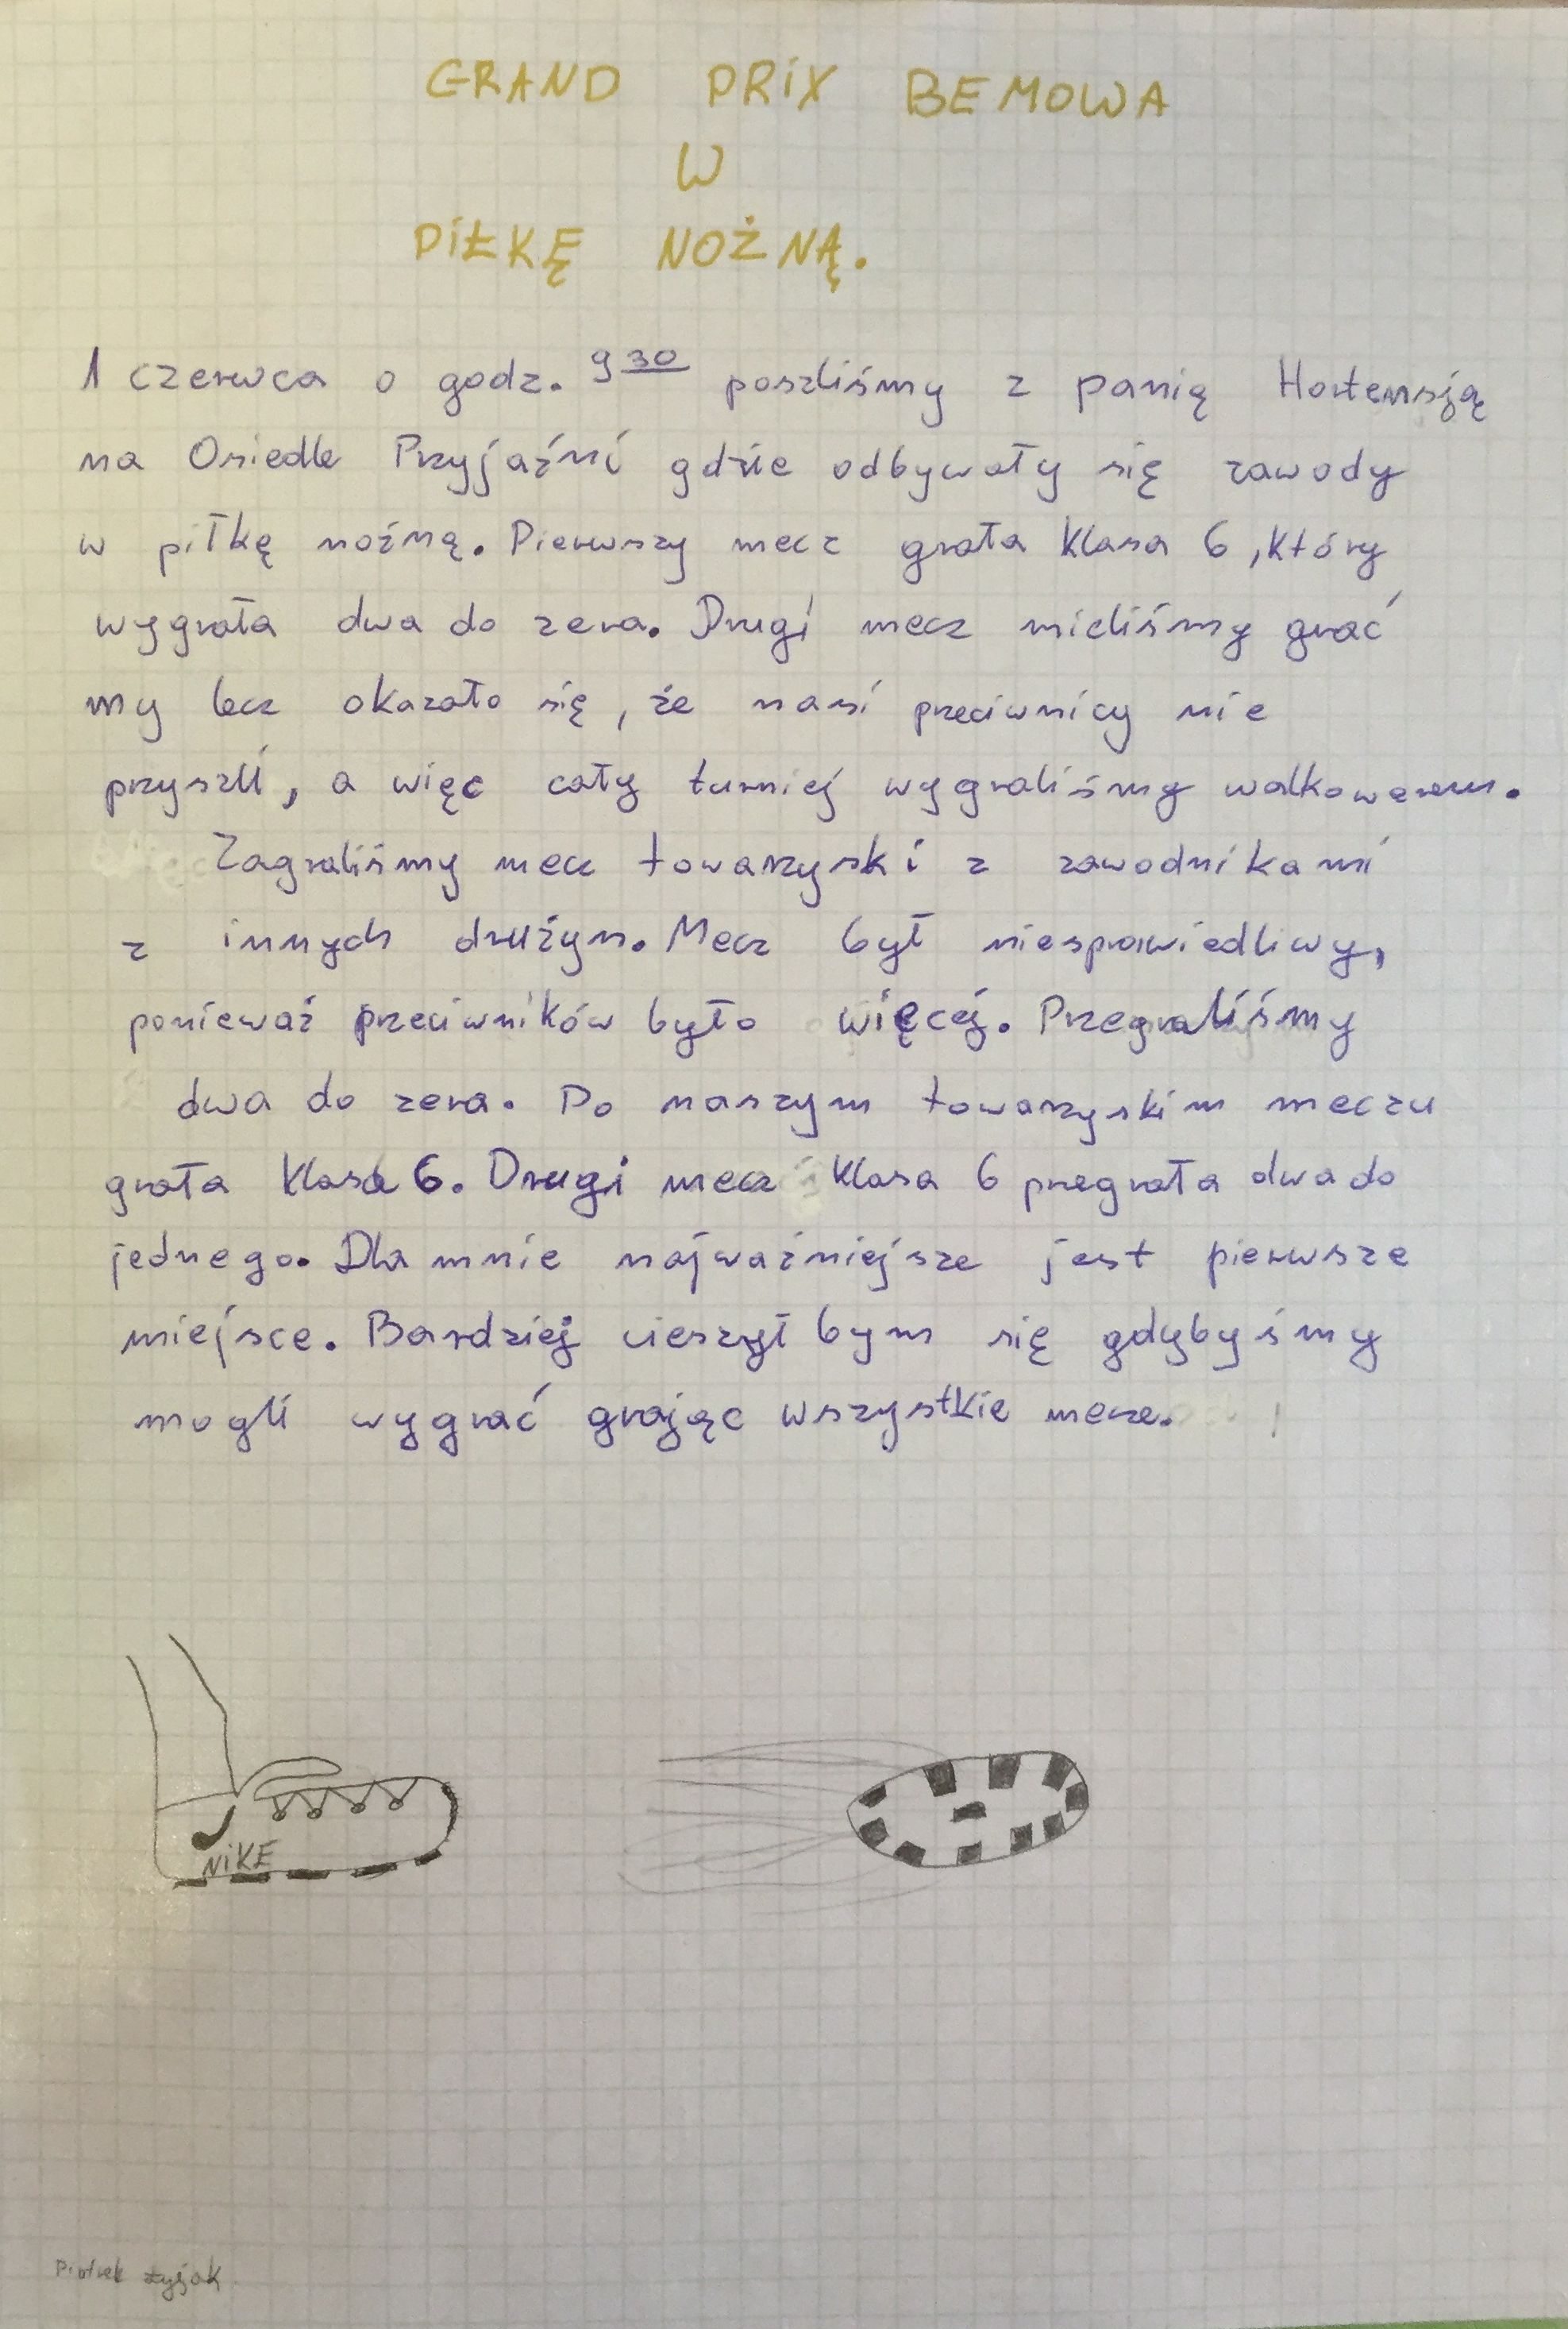 GRAND PRIX BEMOWA
W
PIŁKĘ NOŻNĄ.
1 czerwca o godz. 9 30 poszliśmy z panią Hortensją
na Osiedle Przyjaźni gdzie odbywały się zawody
w piłkę nożną. Pierwszy mecz grała klasa 6, który
wygrała dwa do zera. Drugi mecz mieliśmy grać
my lecz okazało się, że nasi przeciwnicy nie
przyszli, a więc cały turniej wygraliśmy walkowerem.
Zagraliśmy mecz towarzyski z zawodnikami
z innych drużyn. Mecz był niesprawiedliwy,
ponieważ przeciwników było więcej. Przegraliśmy
dwa do zera. Po naszym towarzyskim meczu
grała klasa 6. Drugi mecz klasa 6 przegrała dwa do
jednego. Dla mnie najważniejsze jest pierwsze
miejsce. Bardziej cieszył bym się gdybyśmy
mogli wygrać grając wszystkie mecze.
NIKE
Piotrek